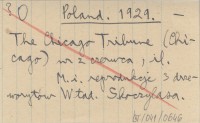 30 Poland. 1929. –
The Chicago Tribune (Chi-
cago) w z czerwca, il.
M.i. reprodukcje 3 drze-
worytów Wład. Skoczylasa.
/041/0646